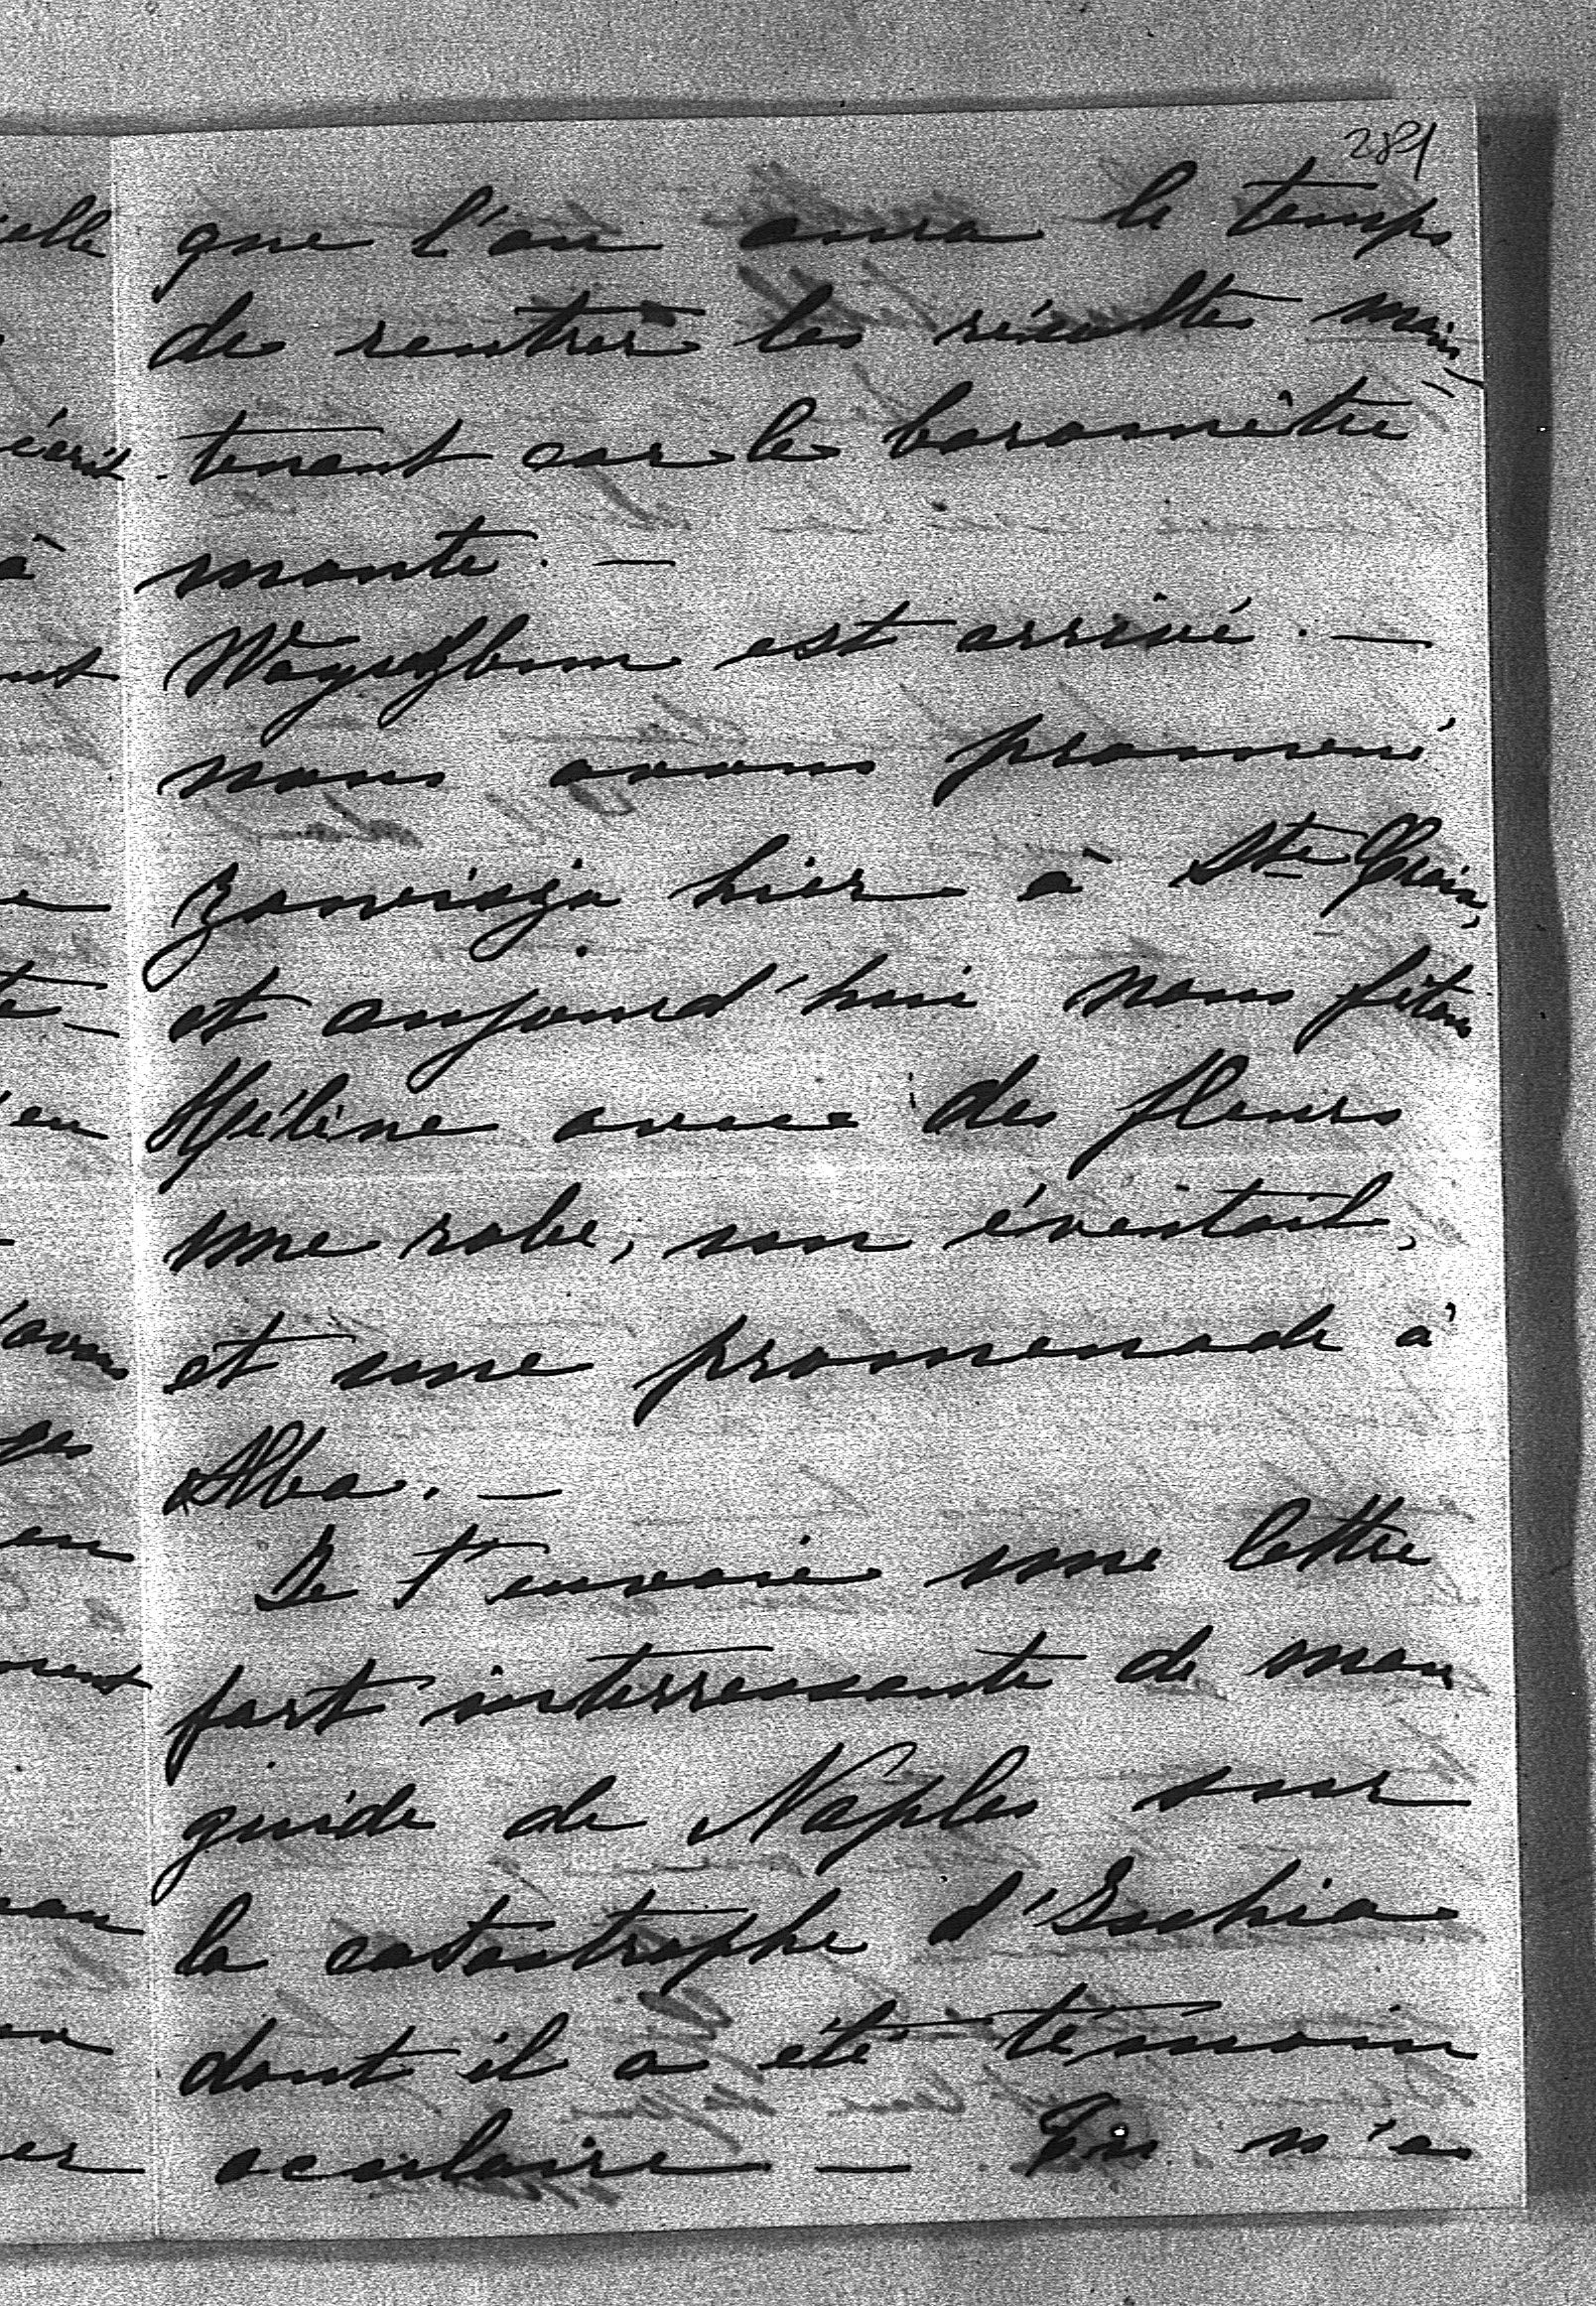 281
que l'on aura le temps
de rentrer les récoltes main-
tenant car le baromètre
monte. —
est arrivé. —
nous avons promené
Zawisza hier à Ste Croix,
et aujourd'hui nous fêtons
Hélène avec des fleurs
une robe, son éventail,
et une promenade à
Alba. —
Je t'envoie une lettre
fort interressante de mon
guide de Naples sur
la catastrophe d'Ischia
dont il a été témoin
oculaire — n'as